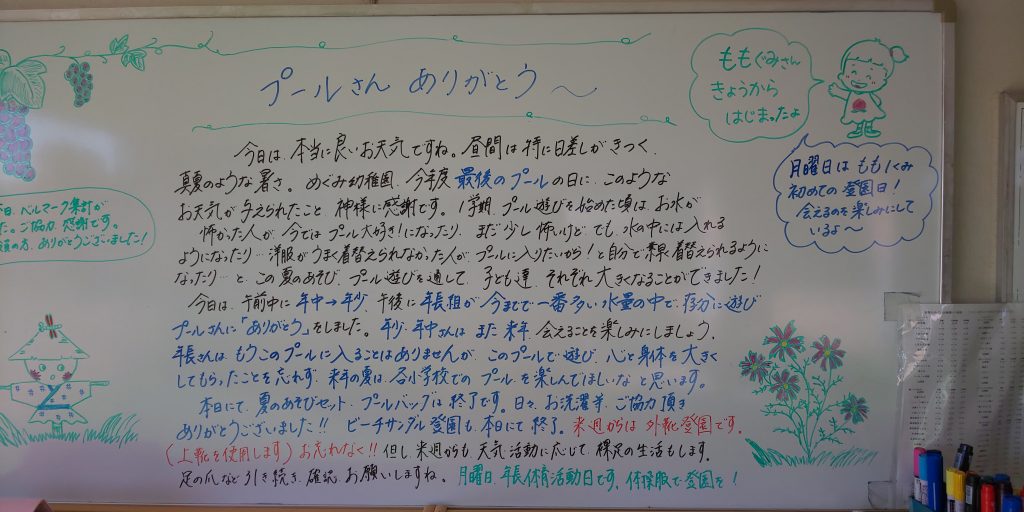 プールさん ありがとう〜
ももぐみさん
きょうから
はじまったよ
月曜日は ももぐみ
初めての登園日!
会えるのを楽しみにして
いるよ〜
日、ベルマーク集計が
た。ご協力 感謝です。
の方、ありがとうございました!
今日は、本当に良いお天気ですね。昼間は特に日差しがきつく、
真夏のような暑さ。めぐみ幼稚園、今年度 最後のプールの日に、このような
お天気が与えられたこと 神様に感謝です。1学期、プール遊びを始めた頃は、お水が
怖かった人が、今ではプール大好き!になったり、まだ少し怖いけど でも、水の中には入れる
ようになったり…洋服がうまく着替えられなかった人が「プールに入りたいから!」と自分で 着替えられるように
なったり…と、この夏のあそび、プール遊びを通して、子ども達、それぞれ大きくなることができました!
今日は、午前中に年中→年少、午後に年長組が 今までで一番多い水量の中で、存分に遊び
プールさんに「ありがとう」をしました。年少・年中さんは また来年、会えることを楽しみにしましょう。
年長さんは、もうこのプールに入ることはありませんが、このプールで遊び、心と身体を大きく
してもらったことを忘れず、来年の夏は、各小学校でのプールを楽しんでほしいなと思います。
本日にて、夏のあそびセット、プールバッグは終了です。日々、お洗濯等、ご協力頂き
ありがとうございました!! ビーチサンダル登園も、本日にて終了。来週からは外靴登園です。
(上靴を使用します)お忘れなく!! 但し、来週からも 天気、活動に応じて、裸足の生活もします。
足の爪など引き続き、確認、お願いしますね。月曜日、年長体育活動日です。体操服で登園を!